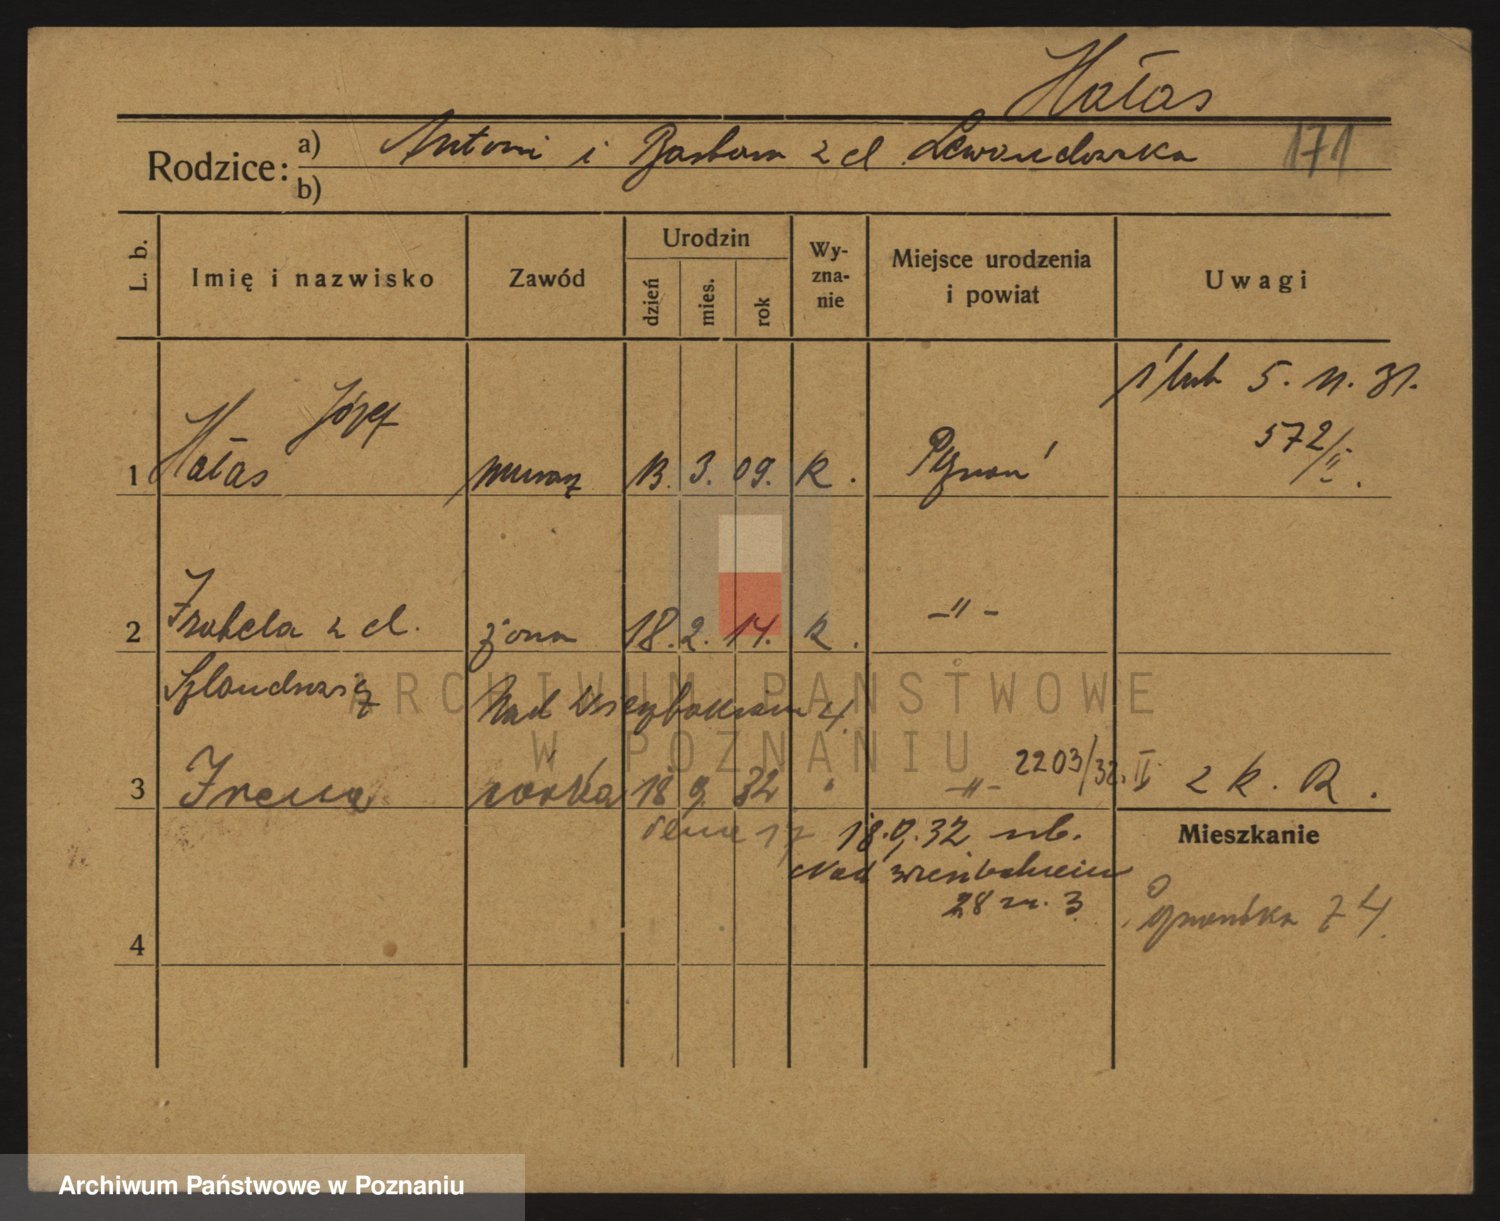 Hałas
Rodzice: a) Antoni i Barbara z d. Lewandowska 171
b)
L. b. Imię i nazwisko Zawód Urodzin dzień mies. rok Wy-zna-nie Miejsce urodzenia i powiat Uwagi
ślub 5. 11. 31.
572/II.
Józef
1 Hałas murarz 13. 3. 09. k. Poznań
2 Izabela z d. żona 18. 2. 14. k. -"-
Nad Wierzbakiem 4
2203/32. II
3 Irena córka 18 9 32 " -"- z k. R.
18.9.32 ub.
Nad Wierzbakiem
28 m. 3
Mieszkanie
74
4
ARCHIWUM PAŃSTWOWE
W POZNANIU
Archiwum Państwowe w Poznaniu